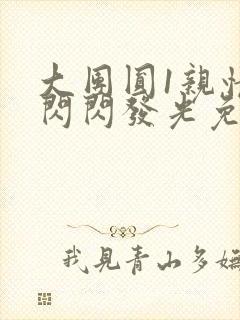 大团圆1亲情
閃閃發光免
我見青山多嫵